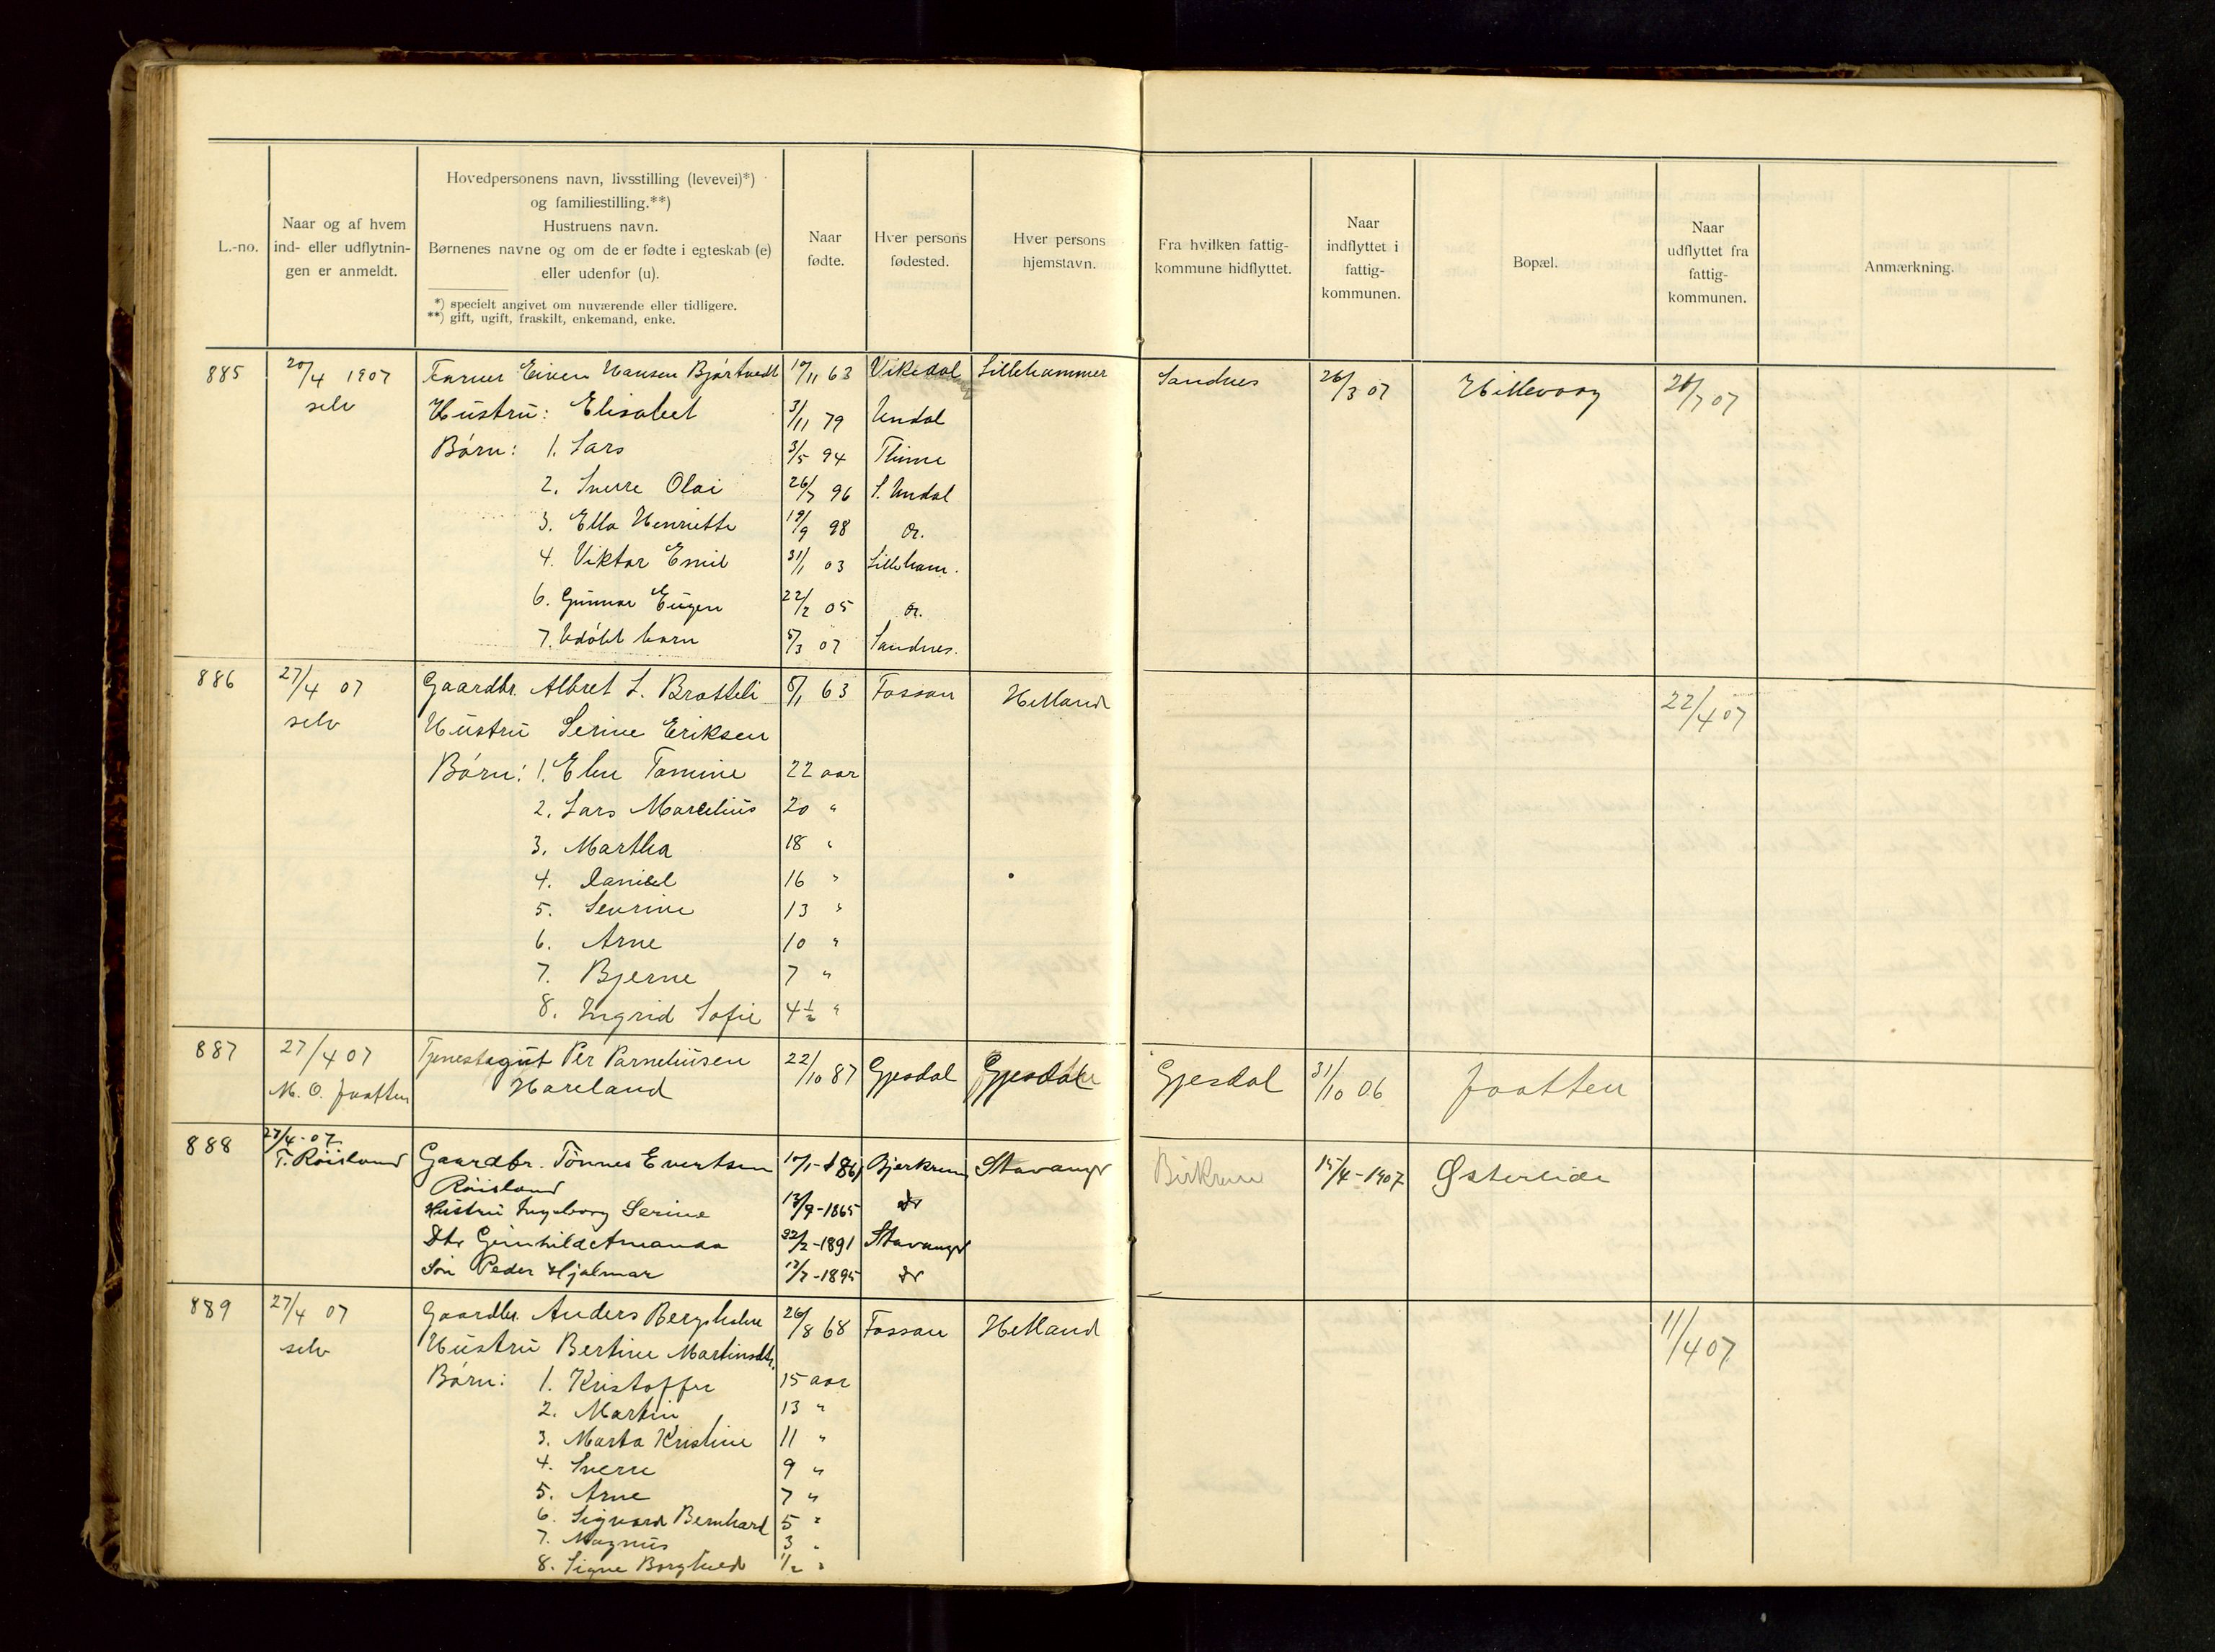 L.-no.
Naar og af hvem
ind- eller udflytnin-
gen er anmeldt.
Hovedpersonens navn, livsstilling (levevei)*)
og familiestilling.**)
Hustruens navn.
Børnenes navne og om de er fødte i egteskab (e)
eller udenfor (u).
*) specielt angivet om nuværende eller tidligere.
**) gift, ugift, fraskilt, enkemand, enke.
Naar
fødte.
Hver persons
fødested.
Hver persons
hjemstavn.
Fra hvilken fattig-
kommune hidflyttet.
Naar
indflyttet i
fattig-
kommunen.
Bopæl.
Naar
udflyttet fra
fattig-
kommunen.
Anmærkning.
885 20/4 1907 Hansen 63 Vikedal Lillehammer Sandnes 26/3 07 Hillevaag 07
selv Hustru: Elisabet 3/11 79 Undal
Børn: 1. Lars 3/5 94 Thime
2. Sverre Olai 26/7 96 S. Undal
3. Ella Henriette 19/9 98 do.
4. Viktor Emil 31/1 03 Lilleham.
6. Gunnar Eugen 22/2 05 do.
7. Udøbt barn 5/3 07 Sandnes.
886 27/4 07 Gaardbr. Albret L. Bratteli 5/1 63 Fossan Hetland 22/4 07
selv Hustru Serine Eriksen
Børn: 1. Elen Tomine 22 aar
2. Lars Marselius 20 "
3. Martha 18 "
4. Daniel 16 "
5. Sevrine 13 "
6. Arne 10 "
7. Bjerne 7 "
8. Ingrid Sofie 4½ "
887 27/4 07 Tjenestegut Per Parneliusen 22/10 87 Gjesdal Gjesdal Gjesdal 31/10 06 Jaatten
M. O. Jaatten Hareland
888 27/4-07
T. Røisland Gaardbr. Tønnes Evertsen Bjerkrem Stavanger Birkrem 15/4-1907 Østerlide
Røisland
Hustru Ingeborg Serine 13/9-1865 do
Dtr Gunhild Amanda 22/2-1891 Stavanger
Søn Peder Hjalmar 13/7-1895 do
889 27/4 07 Gaardbr. Anders 26/8 68 Fossan Hetland 11/4 07
selv Hustru Bertine Martinsdtr.
Børn: 1. Kristoffer 15 aar
2. Martin 13 "
3. Marta Kristine 11 "
4. Sverre 9 "
5. Arne 7 "
6. Sigvard Bernhard 5 "
7. Magnus 3 "
8. Signe Borghild ½ "